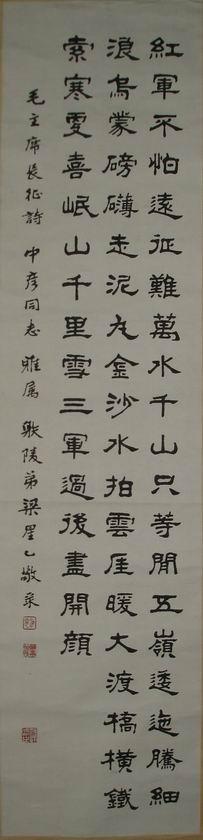 紅軍不怕遠征難萬水千山只等閒五嶺逶迤騰細
浪烏蒙磅礴走泥丸金沙水拍雲厓暖大渡橋橫鐵
索寒更喜岷山千里雪三軍過後盡開顔
毛主席長征詩 中彦同志 雅属 歐陵弟梁星乙敬录